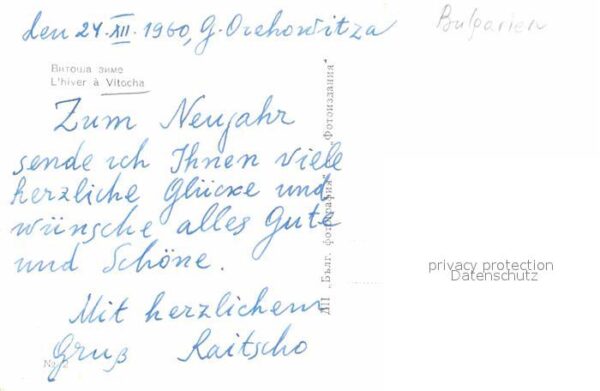 den 24. XII. 1960, G. Orehowitza
Bulgarien
Витоша зиме
L'hiver à Vitocha
Zum Neujahr
sende ich Ihnen viele
herzliche Glücke und
wünsche alles Gute
und Schöne.
Mit herzlichem
Gruß Raitscho
ДП „Бълг. фотография" „Фотоиздания"
privacy protection
Datenschutz